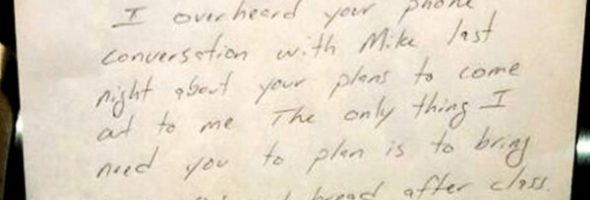 I overheard your phone
conversation with Mike last
night about your plans to come
out to me The only thing I
need you to plan is to bring
bread after class.